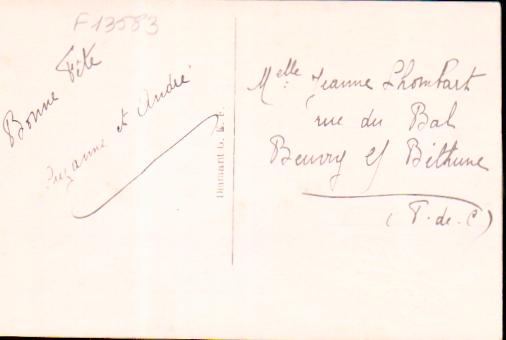 F13583
Bonne Fête
Suzanne et André
Melle Jeanne Lhomhart
rue du Bal
Beuvry s/ Béthune
(P. de. C)